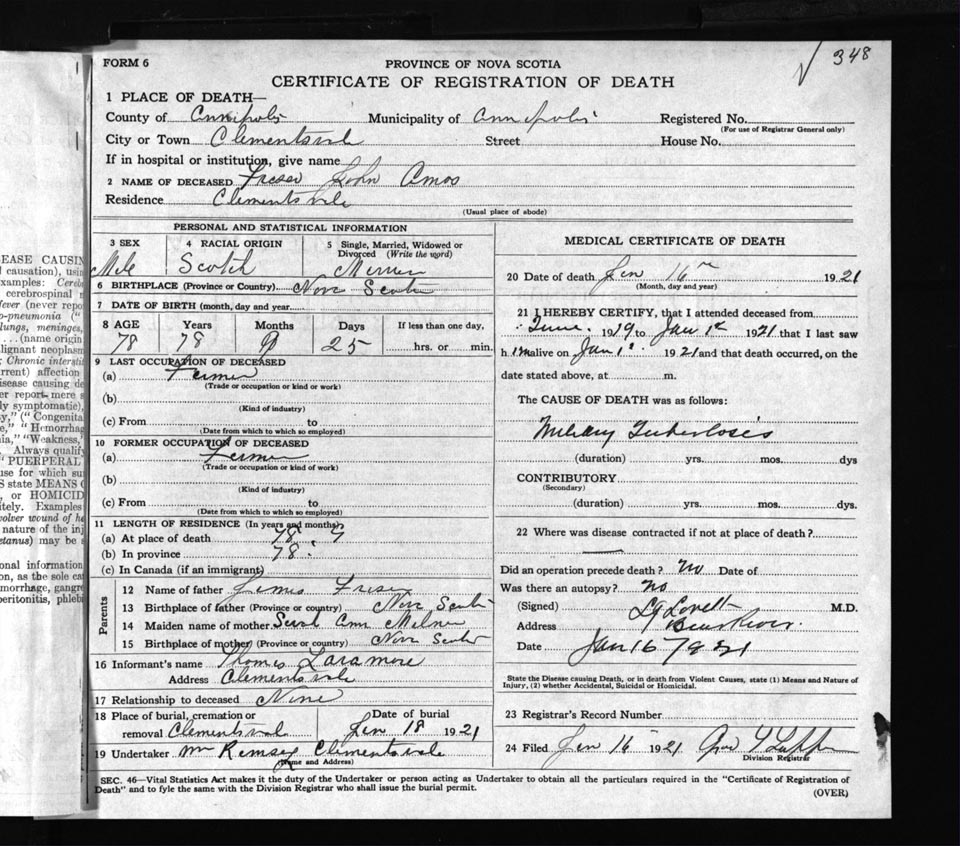 348
FORM 6
PROVINCE OF NOVA SCOTIA
CERTIFICATE OF REGISTRATION OF DEATH
1 PLACE OF DEATH—
County of Annapolis Municipality of Annapolis Registered No.
(For use of Registrar General only)
City or Town Clementsvale Street House No.
If in hospital or institution, give name
2 NAME OF DECEASED Fraser John Amos
Residence Clementsvale
(Usual place of abode)
PERSONAL AND STATISTICAL INFORMATION
3 SEX 4 RACIAL ORIGIN 5 Single, Married, Widowed or Divorced (Write the word)
Male Scotch
6 BIRTHPLACE (Province or Country) Nova Scotia
7 DATE OF BIRTH (month, day and year)
8 AGE Years Months Days If less than one day,
78 78 25 hrs. or min.
9 LAST OCCUPATION OF DECEASED
(a) Farmer
(Trade or occupation or kind or work)
(b)
(Kind of industry)
(c) From to
(Date from which to which so employed)
10 FORMER OCCUPATION OF DECEASED
(a) Farmer
(Trade or occupation or kind or work)
(b)
(Kind of industry)
(c) From to
(Date from which to which so employed)
11 LENGTH OF RESIDENCE (In years and months)
(a) At place of death 78
(b) In province 78
(c) In Canada (if an immigrant)
Parents
12 Name of father James Fraser
13 Birthplace of father (Province or country) Nova Scotia
14 Maiden name of mother Sarah Ann Milner
15 Birthplace of mother (Province or country) Nova Scotia
16 Informant's name Thomas Laramore
Address Clementsvale
17 Relationship to deceased None
18 Place of burial, cremation or removal Clementsvale Date of burial Jan 18 1921
19 Undertaker Mr Ramsey Clementsvale
(Name and Address)
MEDICAL CERTIFICATE OF DEATH
20 Date of death Jan 16 1921
(Month, day and year)
21 I HEREBY CERTIFY, that I attended deceased from
June 1919 to Jan 1921 that I last saw
him alive on Jan 1921 and that death occurred, on the
date stated above, at m.
The CAUSE OF DEATH was as follows:
Miliary Tuberculosis
(duration) yrs. mos. dys
CONTRIBUTORY
(Secondary)
(duration) yrs. mos. dys.
22 Where was disease contracted if not at place of death?
Did an operation precede death? No Date of
Was there an autopsy? No
(Signed) Lovett M.D.
Address Bear River.
Date Jan 16 / 1921
State the Disease causing Death, or in death from Violent Causes, state (1) Means and Nature of
Injury, (2) whether Accidental, Suicidal or Homicidal.
23 Registrar's Record Number
24 Filed Jan 16 1921
Division Registrar
SEC. 46—Vital Statistics Act makes it the duty of the Undertaker or person acting as Undertaker to obtain all the particulars required in the "Certificate of Registration of
Death" and to fyle the same with the Division Registrar who shall issue the burial permit.
(OVER)